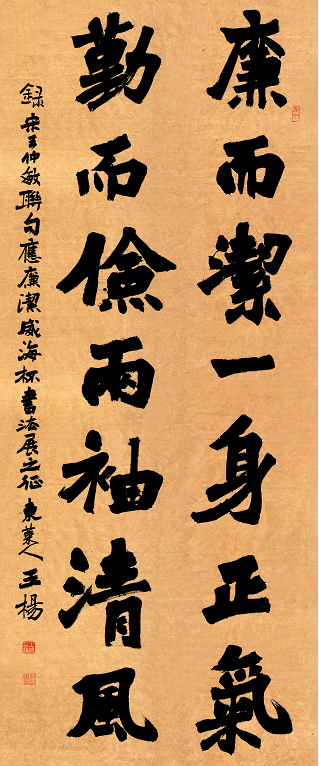 廉而潔一身正氣
勤而儉兩袖清風
錄宋王仲敏聯句應廉潔威海杯書法展之征東萊人王楊